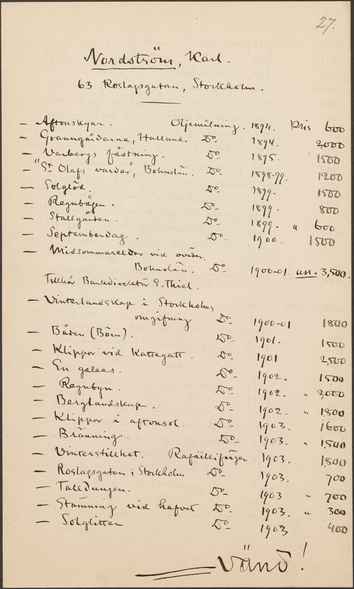 27.
Nordström, Karl.
63 Roslagsgatan, Stockholm.
— Aftonskyar. Oljemålning. 1894. Pris 600
— Granngårdarna, Halland. Do 1894. 2000
— Varbergs fästning. Do 1895. 1500
— "St Olafs vardar", Bohuslän. Do 1898-99. 1200
— Solglöd. Do 1899. 1500
— Regnbågen. Do 1899. 800
— Stallgården. Do 1899. " 600
— Septemberdag. Do 1900. 1500
— Midsommareldar vid
Bohuslän. Do 1900-01 3,500.
Tillhör Bankdirektör E. Thiel.
— Vinterlandskap i Stockholms
omgifning Do 1900-01 1800
— Båten (Börn). Do 1901. 1500
— Klippor vid Kattegatt. Do 1901 2500
— En galeas. Do 1902. 1500
— Regnbyn. Do 1902. " 2000
— Berglandskap. Do 1902. " 1800
— Klippor i aftonsol. Do 1903. " 1600
— Bränning. Do 1903. " 1500
— Vinterstillhet. 1903. 1500
— Roslagsgatan i Stockholm Do 1903. 700
— Talldungen. Do 1903 " 700
— Stämning vid hafvet Do 1903. " 300
— Solglitter Do 1903. 400
Vänd!